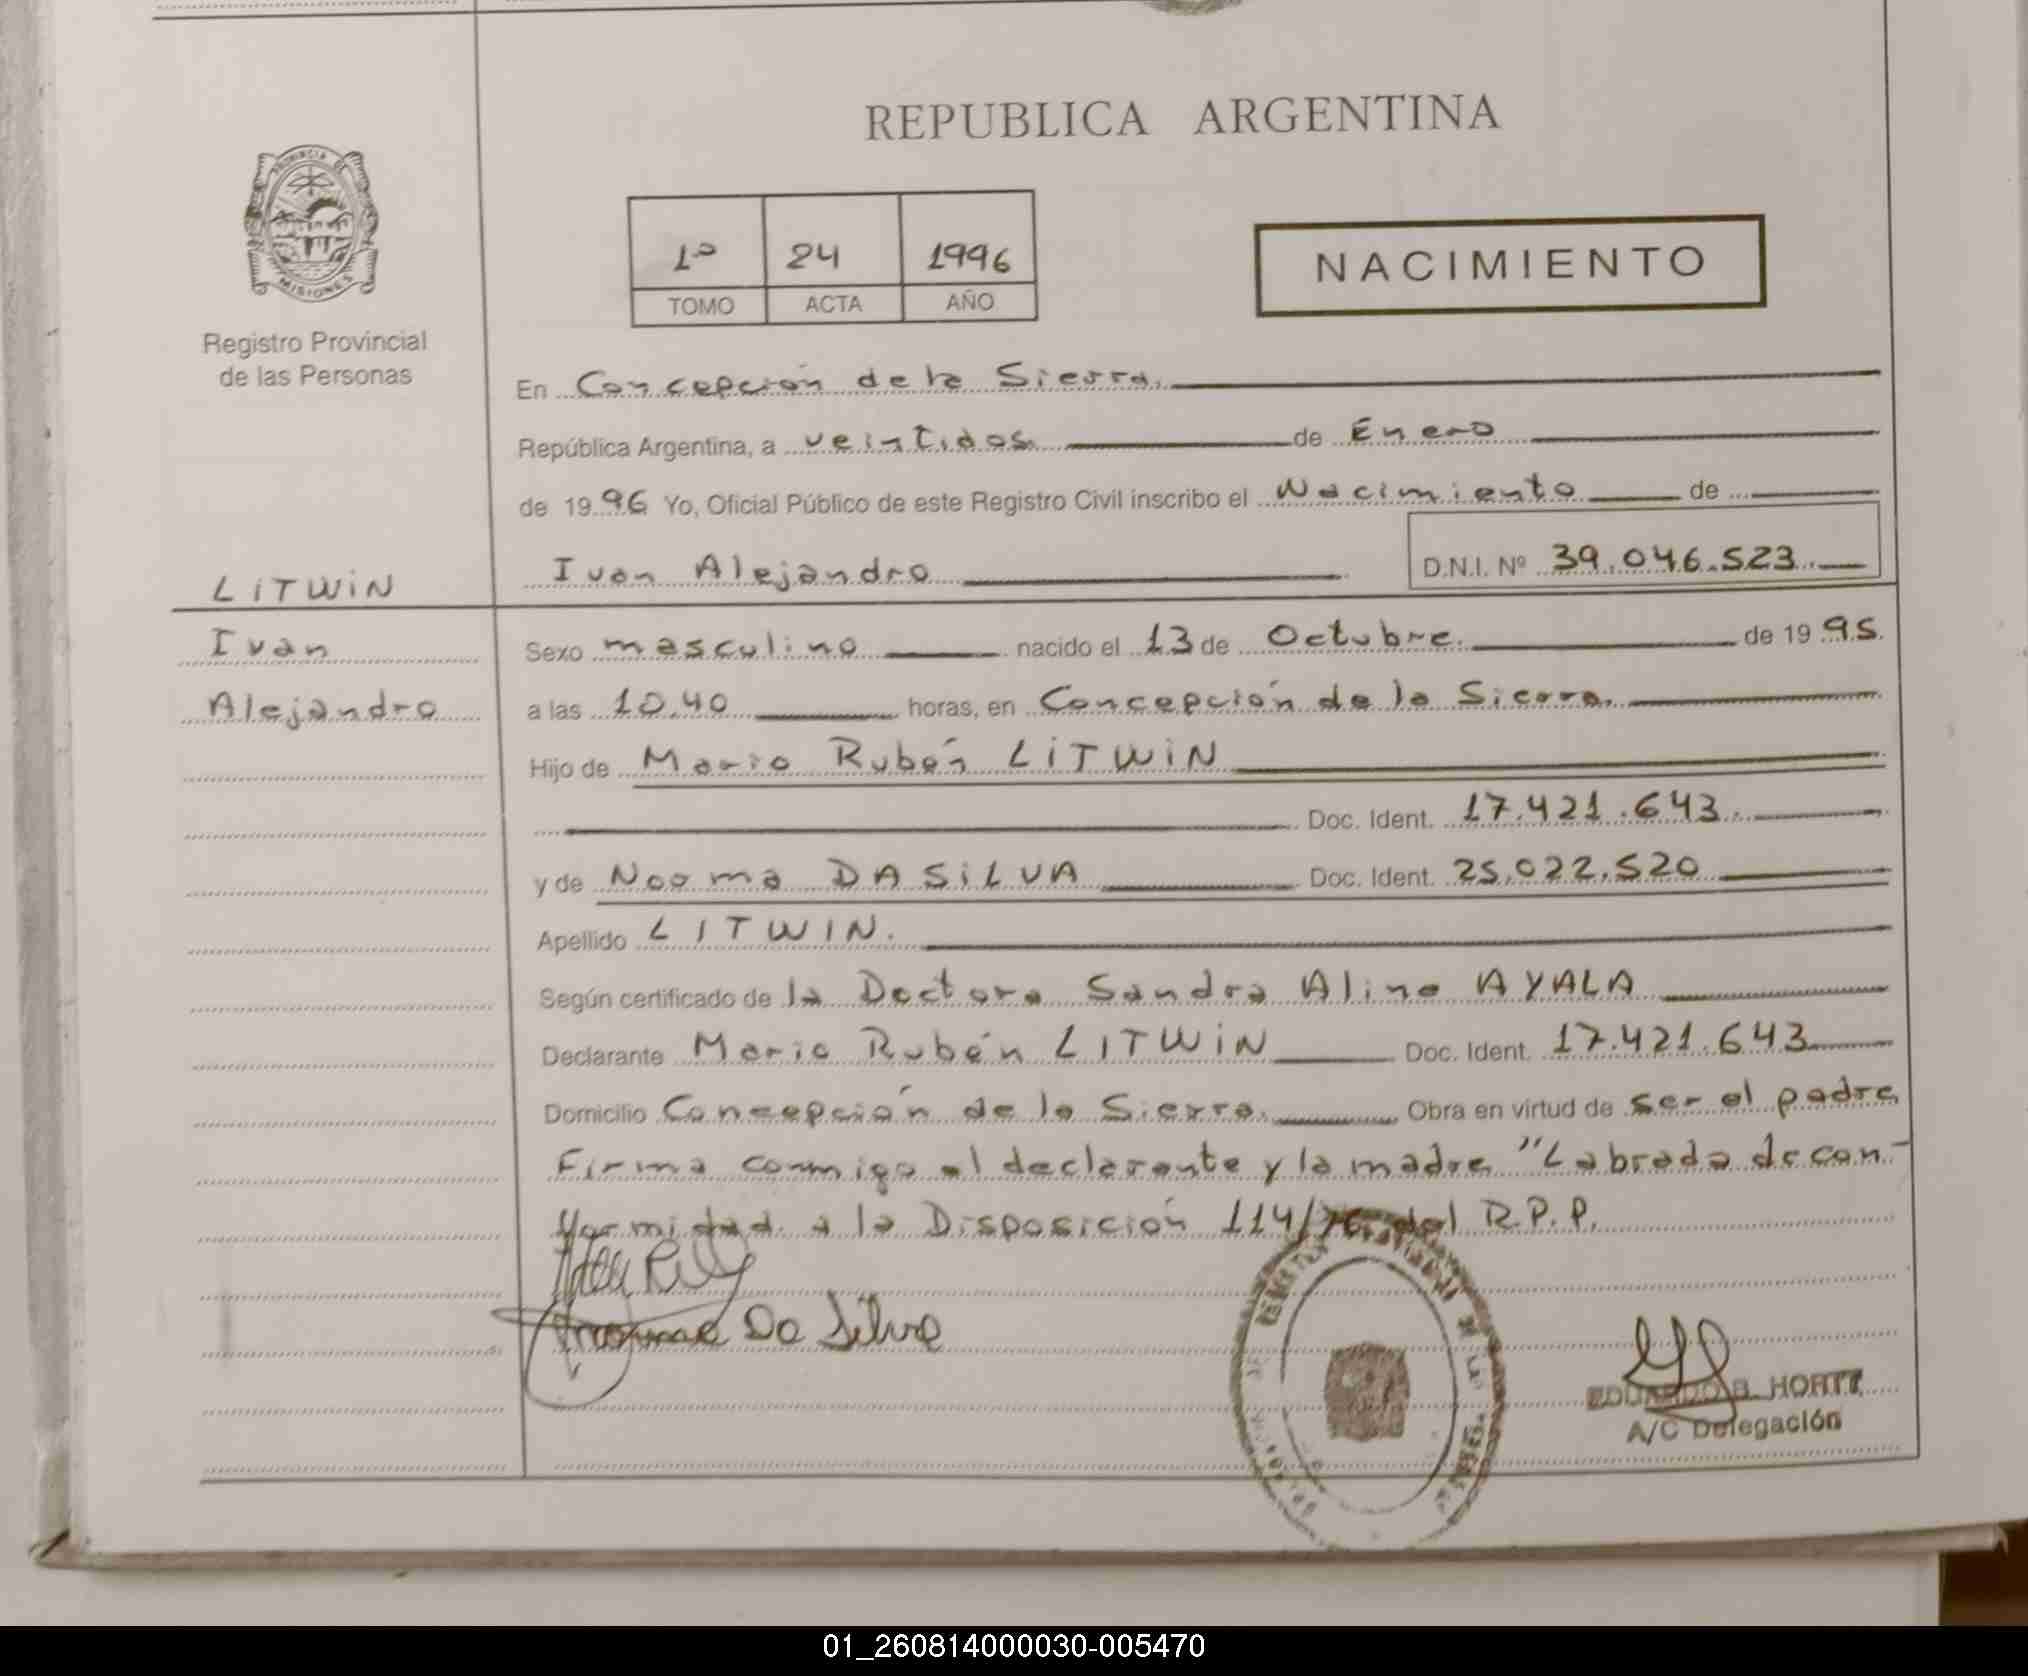 REPUBLICA ARGENTINA
PROVINCIA DE
MISIONES
Registro Provincial
de las Personas
1º 24 1996
TOMO ACTA AÑO
NACIMIENTO
En Concepción de la Sierra.
República Argentina, a veintidos. de Enero
de 1996 Yo, Oficial Público de este Registro Civil inscribo el Nacimiento de
Ivan Alejandro D.N.I. Nº 39.046.523.
LITWIN
Ivan
Alejandro
Sexo masculino nacido el 13 de Octubre. de 1995.
a las 10.40 horas, en Concepción de la Sierra.
Hijo de Mario Rubén LITWIN
Doc. Ident. 17.421.643.
y de Norma DA SILVA Doc. Ident. 25.022.520
Apellido LITWIN.
Según certificado de la Doctora Sandra Alina AYALA
Declarante Mario Rubén LITWIN Doc. Ident. 17.421.643
Domicilio Concepción de la Sierra. Obra en virtud de ser el padre
Firma conmigo el declarante y la madre "Labrada de con-
formidad a la Disposición 114/76 del R.P.P.
Norma Da Silva
EDUARDO B. HORTT
A/C Delegación
01_260814000030-005470